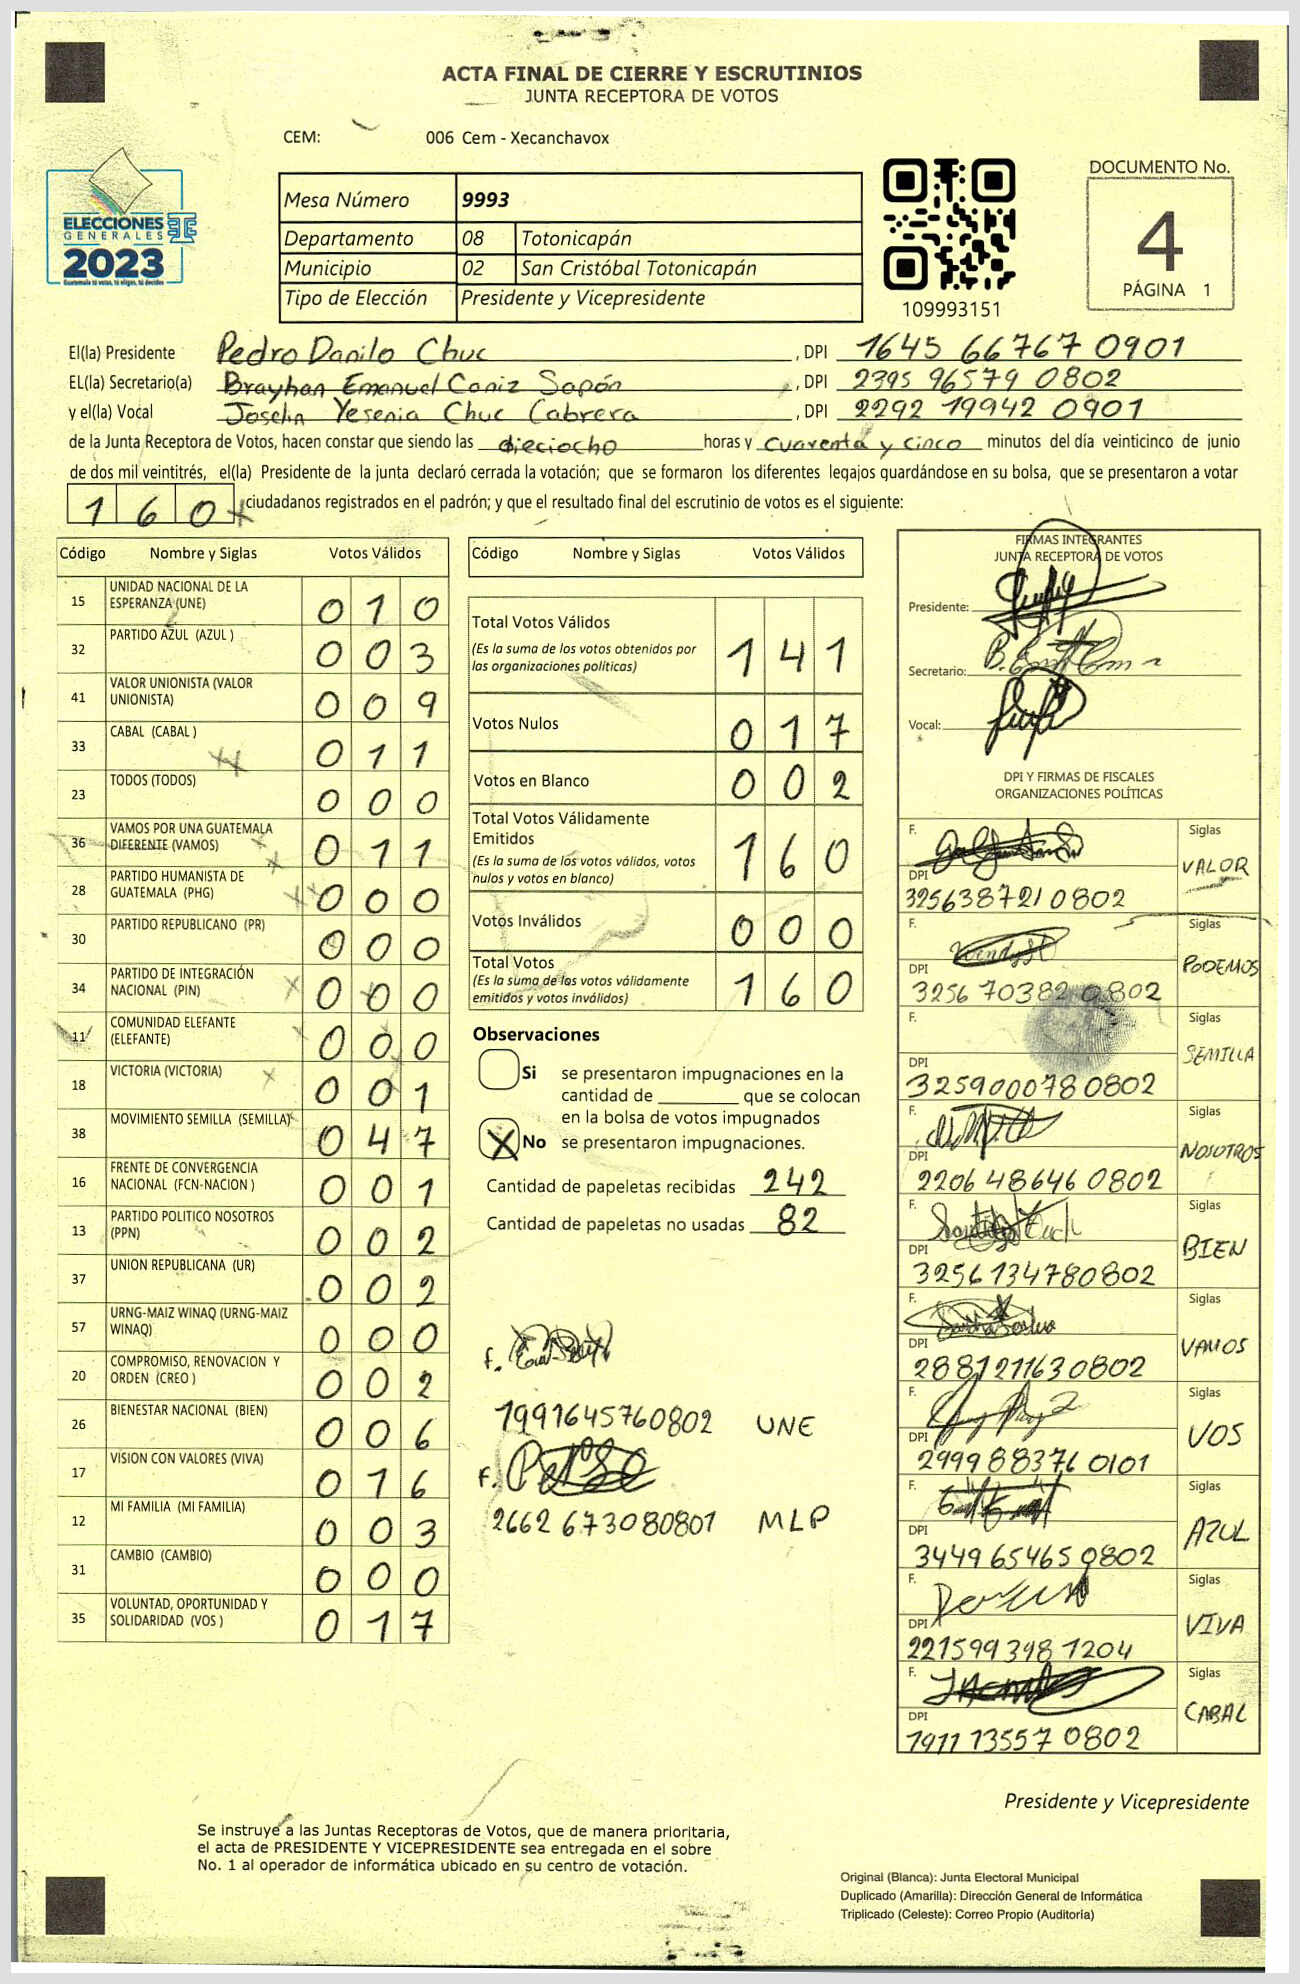 ACTA FINAL DE CIERRE Y ESCRUTINIOS
JUNTA RECEPTORA DE VOTOS
CEM: 006 Cem - Xecanchavox
ELECCIONES
GENERALES
2023
Guatemala tú votas, tú eliges, tú decides
Mesa Número 9993
Departamento 08 Totonicapán
Municipio 02 San Cristóbal Totonicapán
Tipo de Elección Presidente y Vicepresidente
109993151
DOCUMENTO No.
4
PÁGINA 1
El(la) Presidente Pedro Danilo Chuc , DPI 1645 66767 0901
EL(la) Secretario(a) Brayhan Emanuel Caniz Sapón , DPI 2395 96579 0802
y el(la) Vocal Joselin Yesenia Chuc Cabrera , DPI 2292 19942 0901
de la Junta Receptora de Votos, hacen constar que siendo las dieciocho horas y cuarenta y cinco minutos del día veinticinco de junio
de dos mil veintitrés, el(la) Presidente de la junta declaró cerrada la votación; que se formaron los diferentes legajos guardándose en su bolsa, que se presentaron a votar
160 ciudadanos registrados en el padrón; y que el resultado final del escrutinio de votos es el siguiente:
Código Nombre y Siglas Votos Válidos
15 UNIDAD NACIONAL DE LA ESPERANZA (UNE) 010
32 PARTIDO AZUL (AZUL ) 003
41 VALOR UNIONISTA (VALOR UNIONISTA) 009
33 CABAL (CABAL ) 011
23 TODOS (TODOS) 000
36 VAMOS POR UNA GUATEMALA DIFERENTE (VAMOS) 011
28 PARTIDO HUMANISTA DE GUATEMALA (PHG) 000
30 PARTIDO REPUBLICANO (PR) 000
34 PARTIDO DE INTEGRACIÓN NACIONAL (PIN) 000
11 COMUNIDAD ELEFANTE (ELEFANTE) 000
18 VICTORIA (VICTORIA) 001
38 MOVIMIENTO SEMILLA (SEMILLA) 047
16 FRENTE DE CONVERGENCIA NACIONAL (FCN-NACION ) 001
13 PARTIDO POLITICO NOSOTROS (PPN) 002
37 UNION REPUBLICANA (UR) 002
57 URNG-MAIZ WINAQ (URNG-MAIZ WINAQ) 000
20 COMPROMISO, RENOVACION Y ORDEN (CREO ) 002
26 BIENESTAR NACIONAL (BIEN) 006
17 VISION CON VALORES (VIVA) 016
12 MI FAMILIA (MI FAMILIA) 003
31 CAMBIO (CAMBIO) 000
35 VOLUNTAD, OPORTUNIDAD Y SOLIDARIDAD (VOS ) 017
Código Nombre y Siglas Votos Válidos
Total Votos Válidos 141
(Es la suma de los votos obtenidos por
las organizaciones políticas)
Votos Nulos 017
Votos en Blanco 002
Total Votos Válidamente
Emitidos 160
(Es la suma de los votos válidos, votos
nulos y votos en blanco)
Votos Inválidos 000
Total Votos 160
(Es la suma de los votos válidamente
emitidos y votos inválidos)
Observaciones
Si se presentaron impugnaciones en la
cantidad de ________ que se colocan
en la bolsa de votos impugnados
X No se presentaron impugnaciones.
Cantidad de papeletas recibidas 242
Cantidad de papeletas no usadas 82
f.
1991645760802 UNE
f.
2662 673080801 MLP
FIRMAS INTEGRANTES
JUNTA RECEPTORA DE VOTOS
Presidente:
Secretario:
Vocal:
DPI Y FIRMAS DE FISCALES
ORGANIZACIONES POLÍTICAS
F. Siglas
DPI VALOR
3256387210802
F. Siglas
DPI PODEMOS
3256 70382 0802
F. Siglas
DPI SEMILLA
3259000780802
F. Siglas
DPI NOSOTROS
2206 48646 0802
F. Siglas
DPI BIEN
3256134780802
F. Siglas
DPI VAMOS
2881211630802
F. Siglas
DPI VOS
2999 88376 0101
F. Siglas
DPI AZUL
3449 65465 0802
F. Siglas
DPI VIVA
221599398 1204
F. Siglas
DPI CABAL
1911 13557 0802
Presidente y Vicepresidente
Se instruye a las Juntas Receptoras de Votos, que de manera prioritaria,
el acta de PRESIDENTE Y VICEPRESIDENTE sea entregada en el sobre
No. 1 al operador de informática ubicado en su centro de votación.
Original (Blanca): Junta Electoral Municipal
Duplicado (Amarilla): Dirección General de Informática
Triplicado (Celeste): Correo Propio (Auditoría)